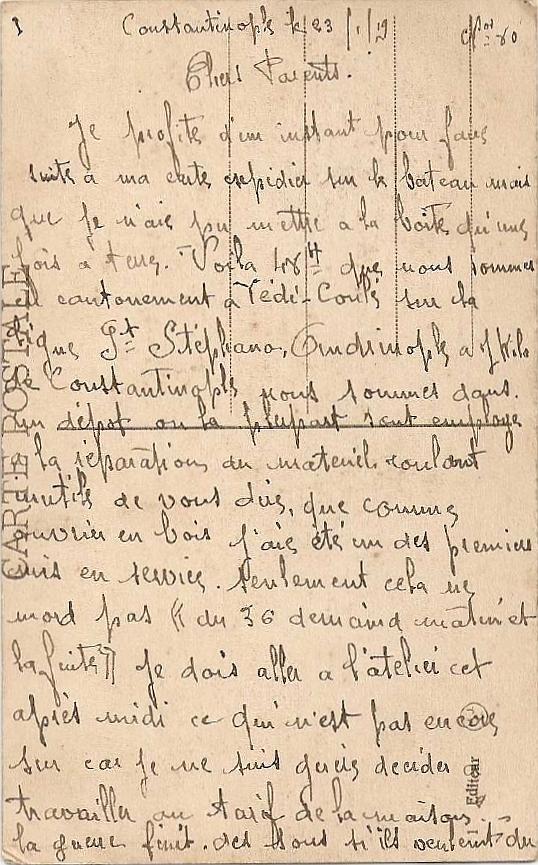 1 Constantinople le 23/1/19 Nos 80
Chers Parents.
Je profite d'un instant pour faire
suite a ma carte expidier sur le bateau mais
que je n'aie pu mettre a la boîte qu'une
fois a terre. Voila 48H que nous sommes
en cantonement à Yédi-Coulé sur la
ligne St Stéphano, Andrinople a 7 Kilo
de Constantinople nous sommes dans.
un dépot ou la plupart sont employe
a la reparations du materiel roulant
inutile de vous dire, que comme
ouvrier en bois j'aie été un des premiers
mis en service. seulement cela ne
mord pas (( du 36 demaind matin et
la fuite)) Je dois aller a l'atelier cet
après midi ce qui n'est pas encore
sur car je ne suis guere decider a
travailler au tarif de la maison.
la guerre finit. des sous s'ils veulent du
CARTE POSTALE
Editeur